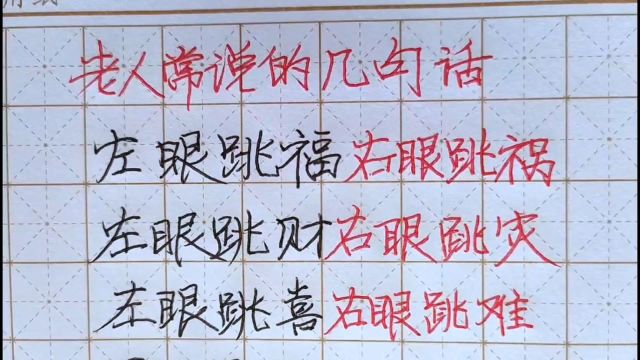 老人常说的几句话
左眼跳福右眼跳祸
左眼跳财右眼跳灾
左眼跳喜右眼跳难